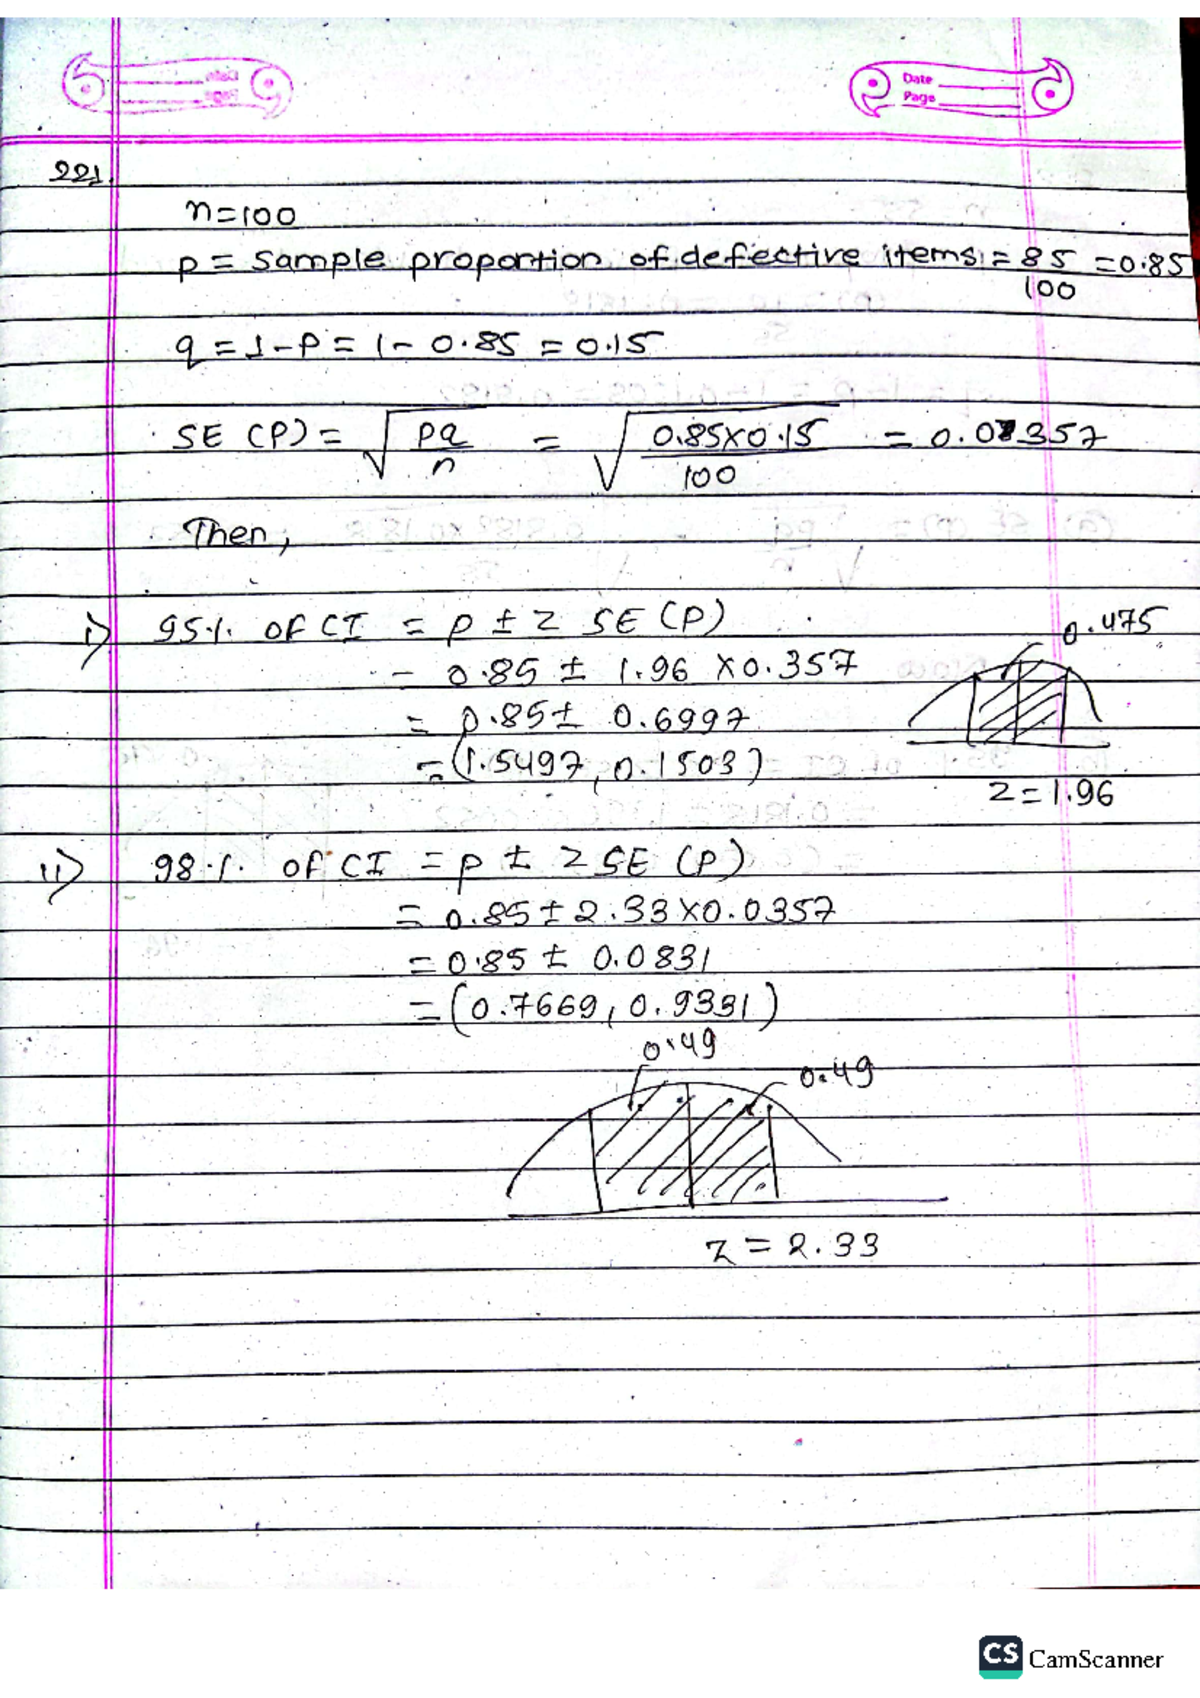 Date
Page
221.
n=100
p = sample proportion of defective items = 85/100 = 0.85
q = 1-P = 1- 0.85 = 0.15
SE (P) = √(pq/n) = √(0.85x0.15/100) = 0.0357
Then,
i) 95%. OF CI = p ± z SE (P)
0.475
= 0.85 ± 1.96 x0.357
= 0.85± 0.6997
= (1.5497, 0.1503)
z = 1.96
ii) 98%. OF CI = p ± z SE (P)
= 0.85 ± 2.33 x0.0357
= 0.85 ± 0.0831
= (0.7669, 0.9331)
0.49
0.49
z = 2.33
CS CamScanner